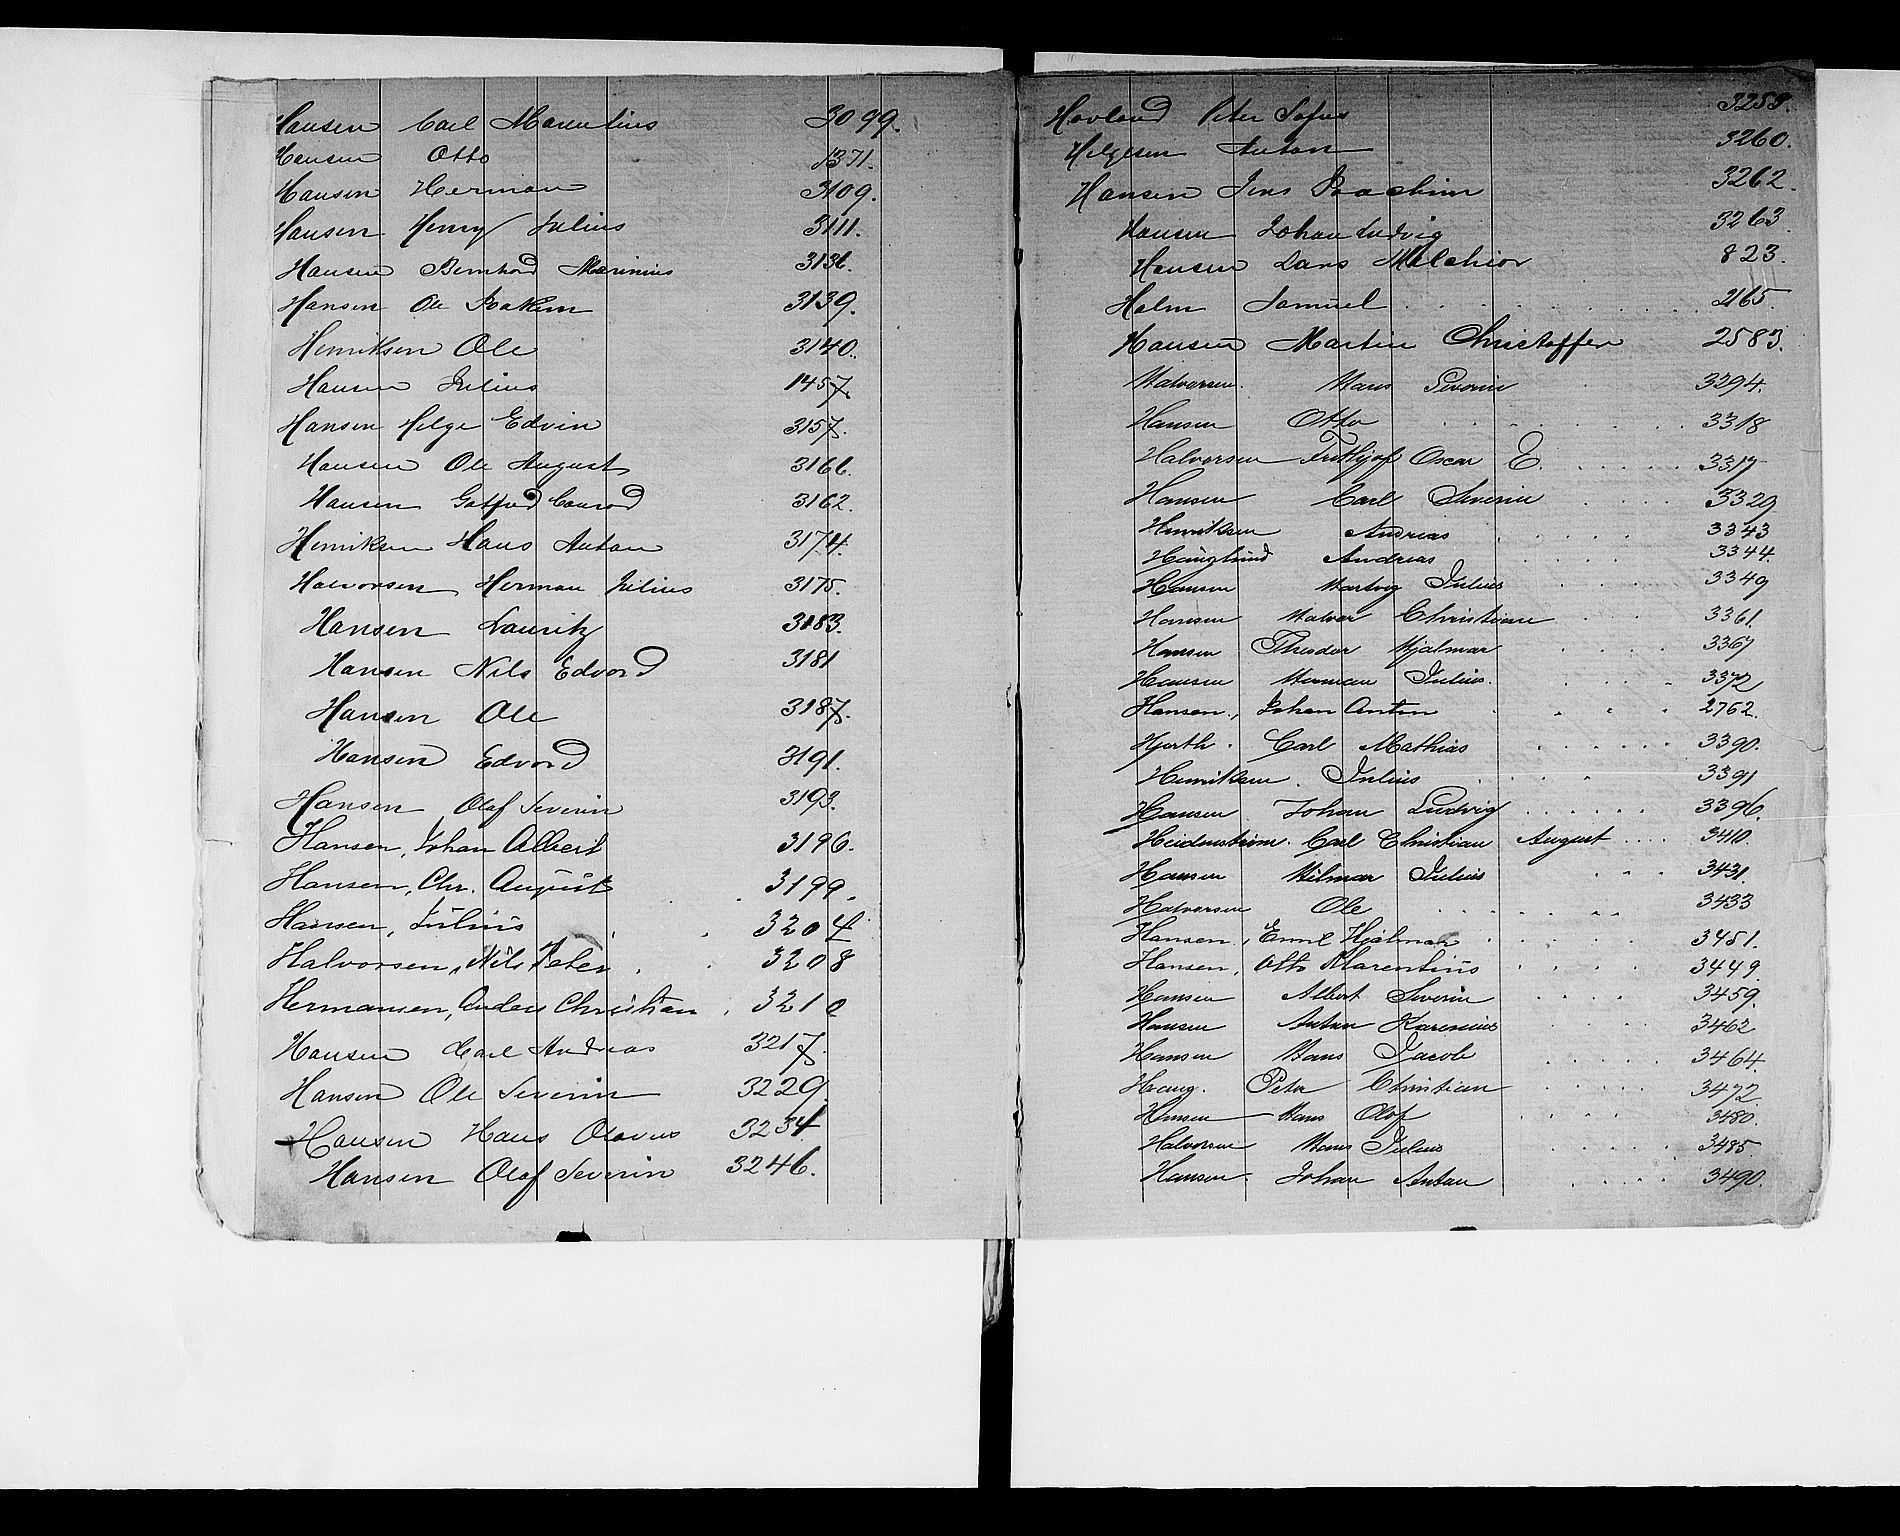 Hansen Carl Marentius 3099.
Hansen Otto 1371.
Hansen Herman 3109.
Hansen Henry Julius 3111.
Hansen Bernhard Marinius 3136.
Hansen Ole Joakim 3139.
Henriksen Ole 3140.
Hansen Julius 1457.
Hansen Helge Edvin 3157.
Hansen Ole August 3166.
Hansen Gotfred Conrad 3162.
Henriksen Hans Anton 3174.
Halvorsen Herman Julius 3175.
Hansen Lauritz 3183.
Hansen Nils Edvard 3181
Hansen Ole 3187.
Hansen Edvard 3191.
Hansen Olaf Severin 3193.
Hansen, Johan Albert 3196.
Hansen, Chr. August 3199.
Hansen, Julius 3204.
Halvorsen, Nils Peter 3208
Hermansen, Anders Christian 3210
Hansen Carl Andreas 3217.
Hansen Ole Severin 3229.
Hansen Hans Olavus 3234
Hansen Olaf Severin 3246.
Hovland Peter Sofus
Helgesen Anton 3260.
Hansen Jens Joachim 3262.
Hansen Johan Ludvig 3263
Hansen Lars Melchior 823.
Holm Samuel 2165.
Hansen Martin Christoffer 2583.
Halvorsen. Hans Severin 3294.
Hansen Otto 3318
Halvorsen Frithjof Oscar E. 3317
Hansen Carl Severin 3329
Henriksen Andreas 3343
Haüglund Andreas 3344.
Hansen Hartvig Julius 3349
Hansen Halvor Christian 3361.
Hansen Theodor Hjalmar 3367
Hansen Herman Julius. 3372
Hansen, Johan Anton 2762.
Hjorth. Carl Mathias 3390.
Henriksen. Julius 3391
Hansen Johan Ludvig 3396.
Heidenstrøm. Carl Christian August 3410.
Hansen Hilmar Julius 3431.
Halvorsen Ole 3433
Hansen, Emil Hjalmar 3451.
Hansen, Otto Marentius 3449
Hansen Albert Severin 3459.
Hansen Anton Karenius 3462
Hansen Hans Jacob 3464.
Haug. Peter Christian 3472
Hansen Hans Olaf 3480.
Halvorsen Hans Julius 3485.
Hansen. Johan Anton 3490.